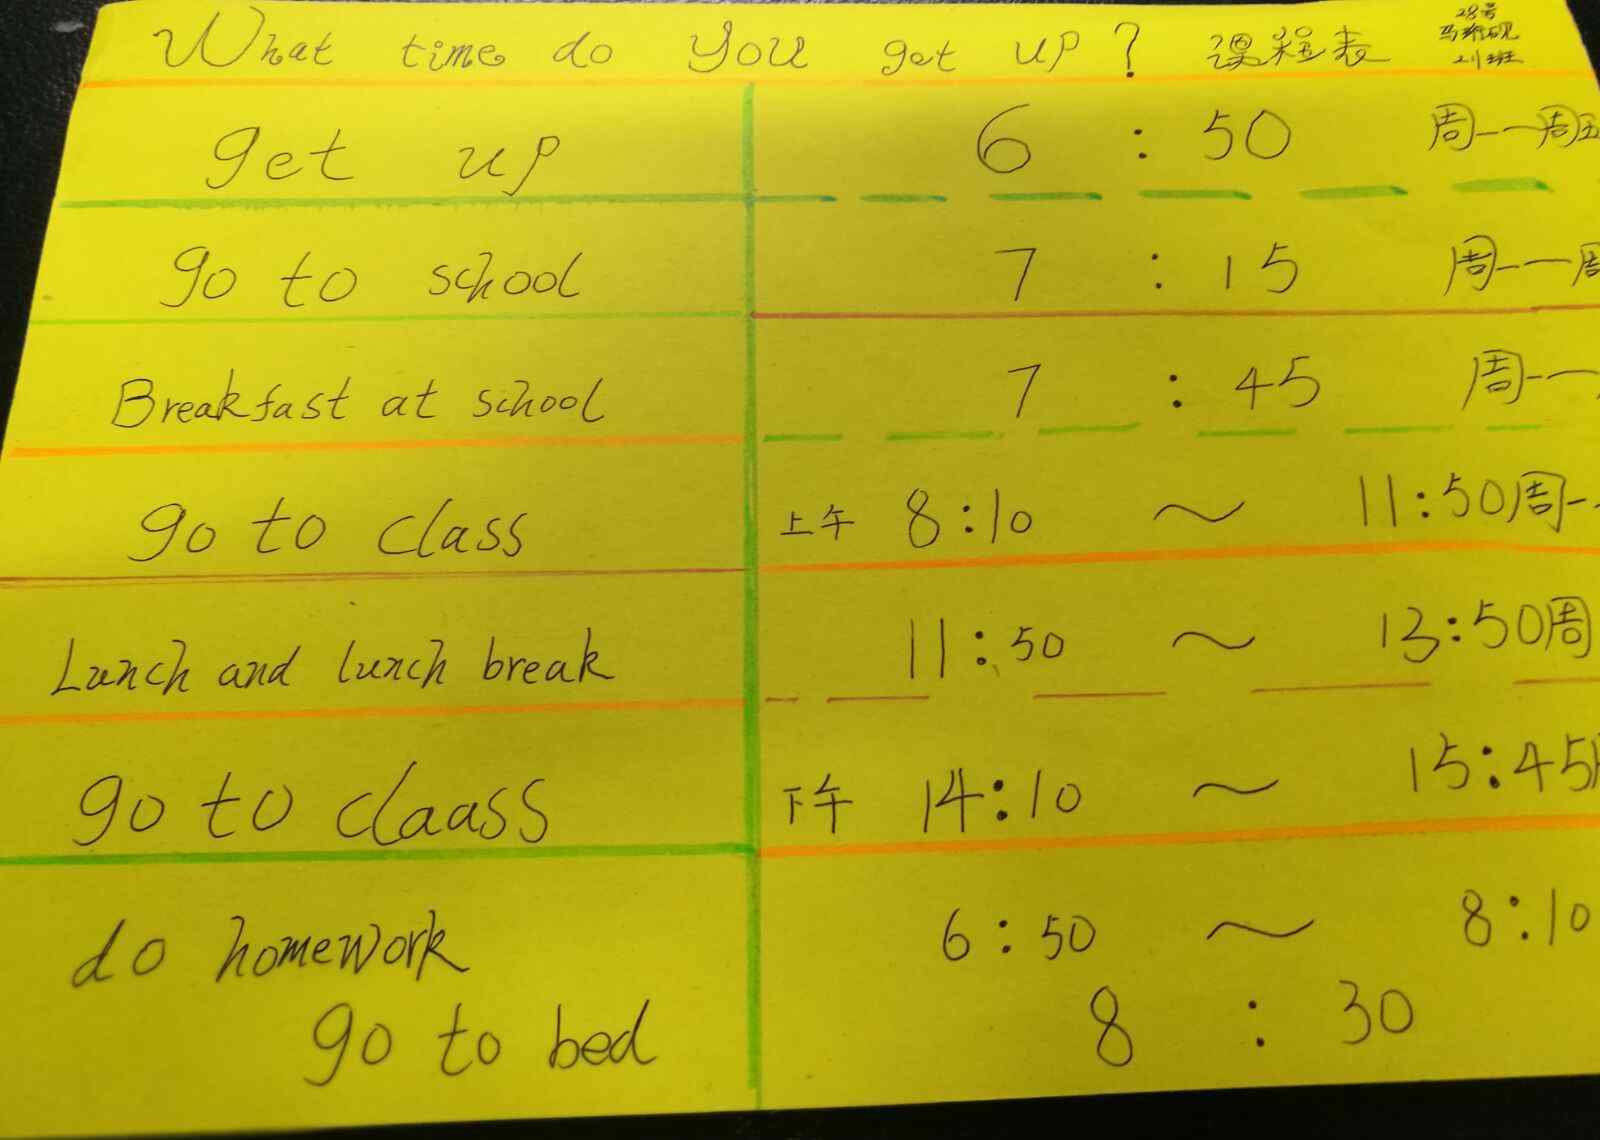 What time do you get up? 课程表
28号
马
211班
get up 6:50 周一一周五
go to school 7:15 周一一周
Breakfast at school 7:45 周一一
go to class 上午 8:10 ~ 11:50 周一
Lunch and lunch break 11:50 ~ 13:50 周
go to claass 下午 14:10 ~ 15:45
do homework 6:50 ~ 8:10
go to bed 8:30